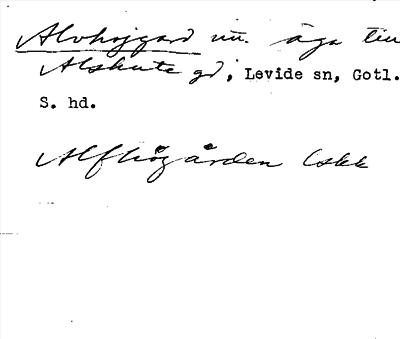 Alvhojgard nu. äga till
Alskute gd, Levide sn, Gotl.
S. hd.
Alfhögården Lskk